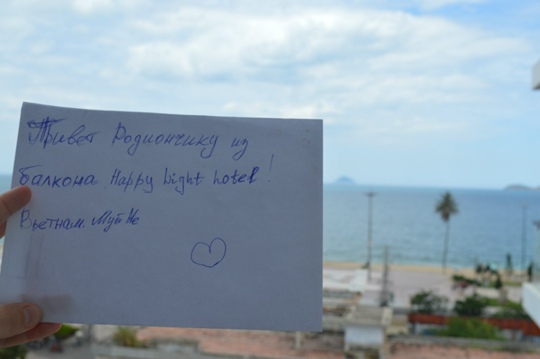 Привет Родиончику из
балкона Happy Light hotel!
Вьетнам. Муй Не